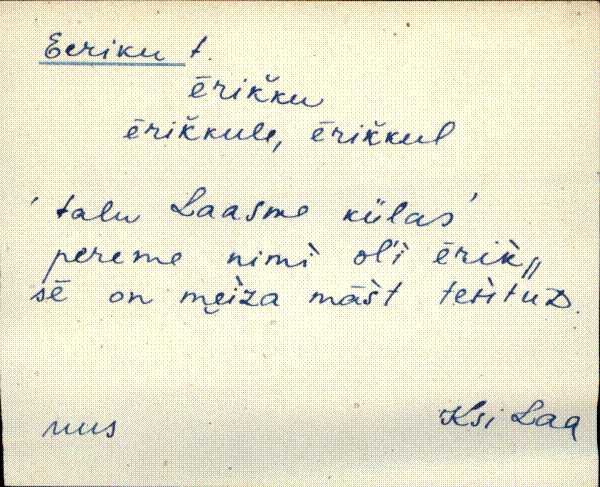 Eeriku t.
ērik̆ku
ērik̆kule, ērik̆kul
'talu Laasme külas'
pereme nimì ol'i ērik̀,,
sē on mẹiza māśt tet̀ituᴅ.
nus
Ksi Laa